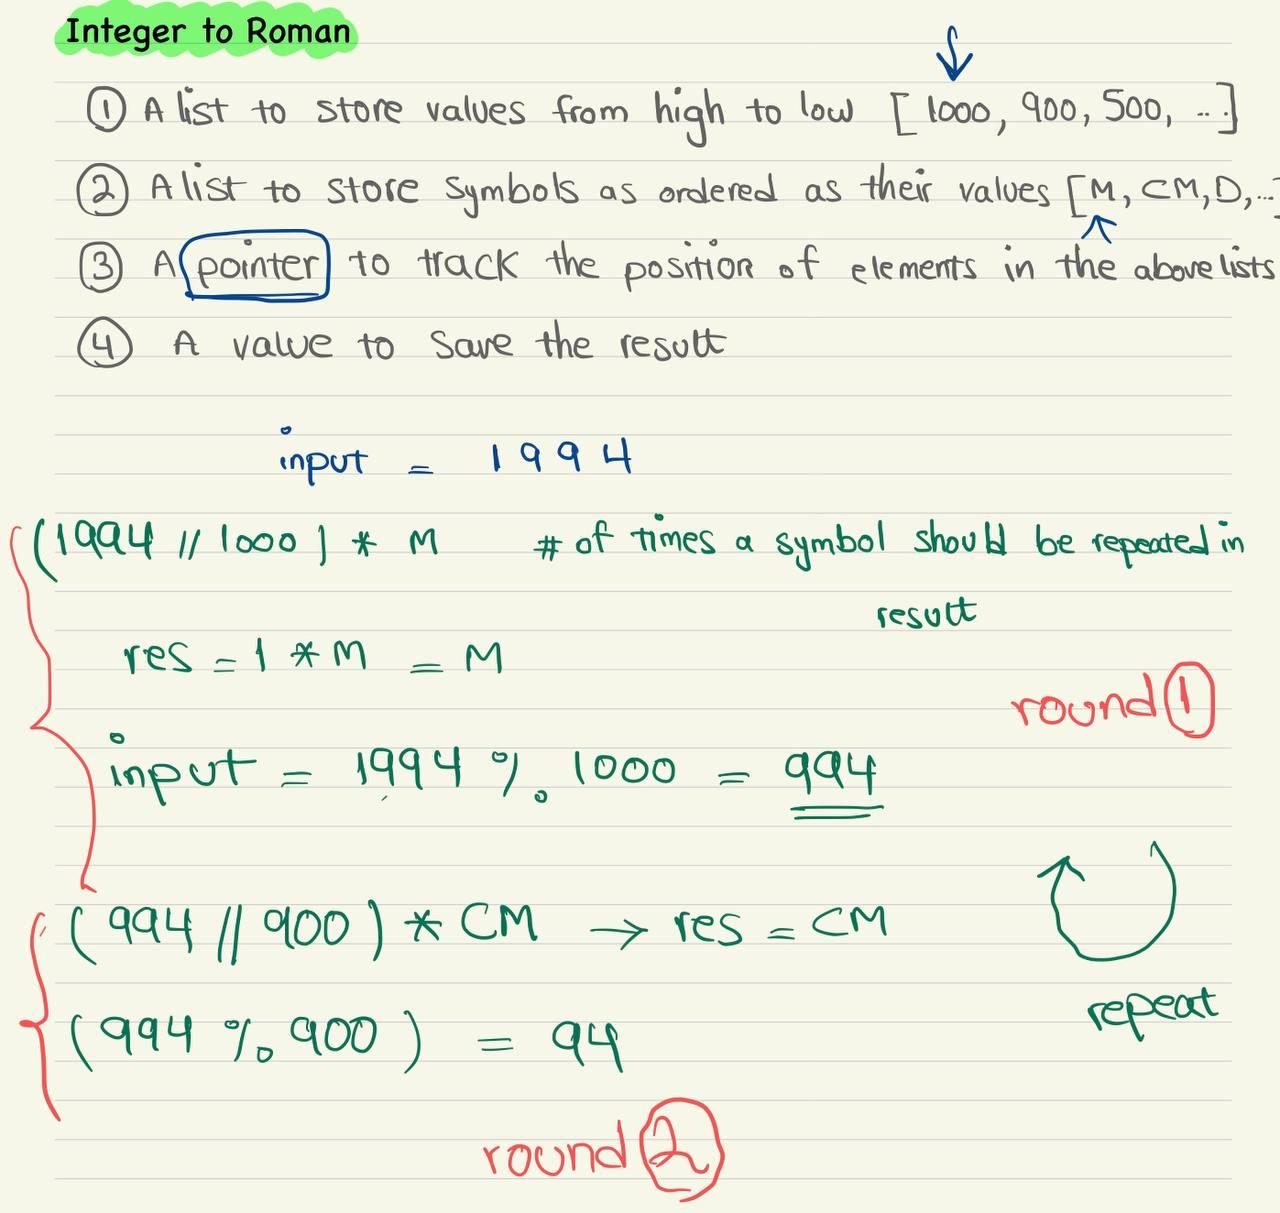 Integer to Roman
① A list to store values from high to low [1000, 900, 500, ...]
② A list to store symbols as ordered as their values [M, CM, D, ...]
③ A pointer to track the position of elements in the above lists
④ A value to save the result
input = 1994
(1994 // 1000) * M # of times a symbol should be repeated in
result
res = 1 * M = M
round ①
input = 1994 % 1000 = 994
(994 // 900) * CM → res = CM
repeat
(994 % 900) = 94
round ②